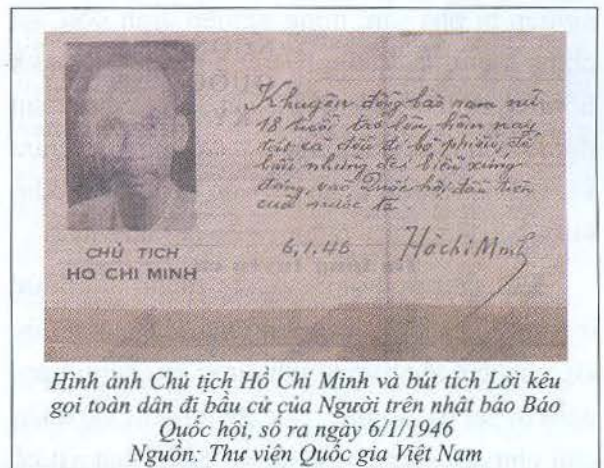 Khuyên đồng bào nam nữ
18 tuổi trở lên, hôm nay
tất cả đều đi bỏ phiếu, để
bầu những đại biểu xứng
đáng, vào Quốc hội đầu tiên
của nước ta.
6.1.46 Hồ Chí Minh
CHỦ TỊCH
HO CHI MINH
Hình ảnh Chủ tịch Hồ Chí Minh và bút tích Lời kêu
gọi toàn dân đi bầu cử của Người trên nhật báo Báo
Quốc hội, số ra ngày 6/1/1946
Nguồn: Thư viện Quốc gia Việt Nam